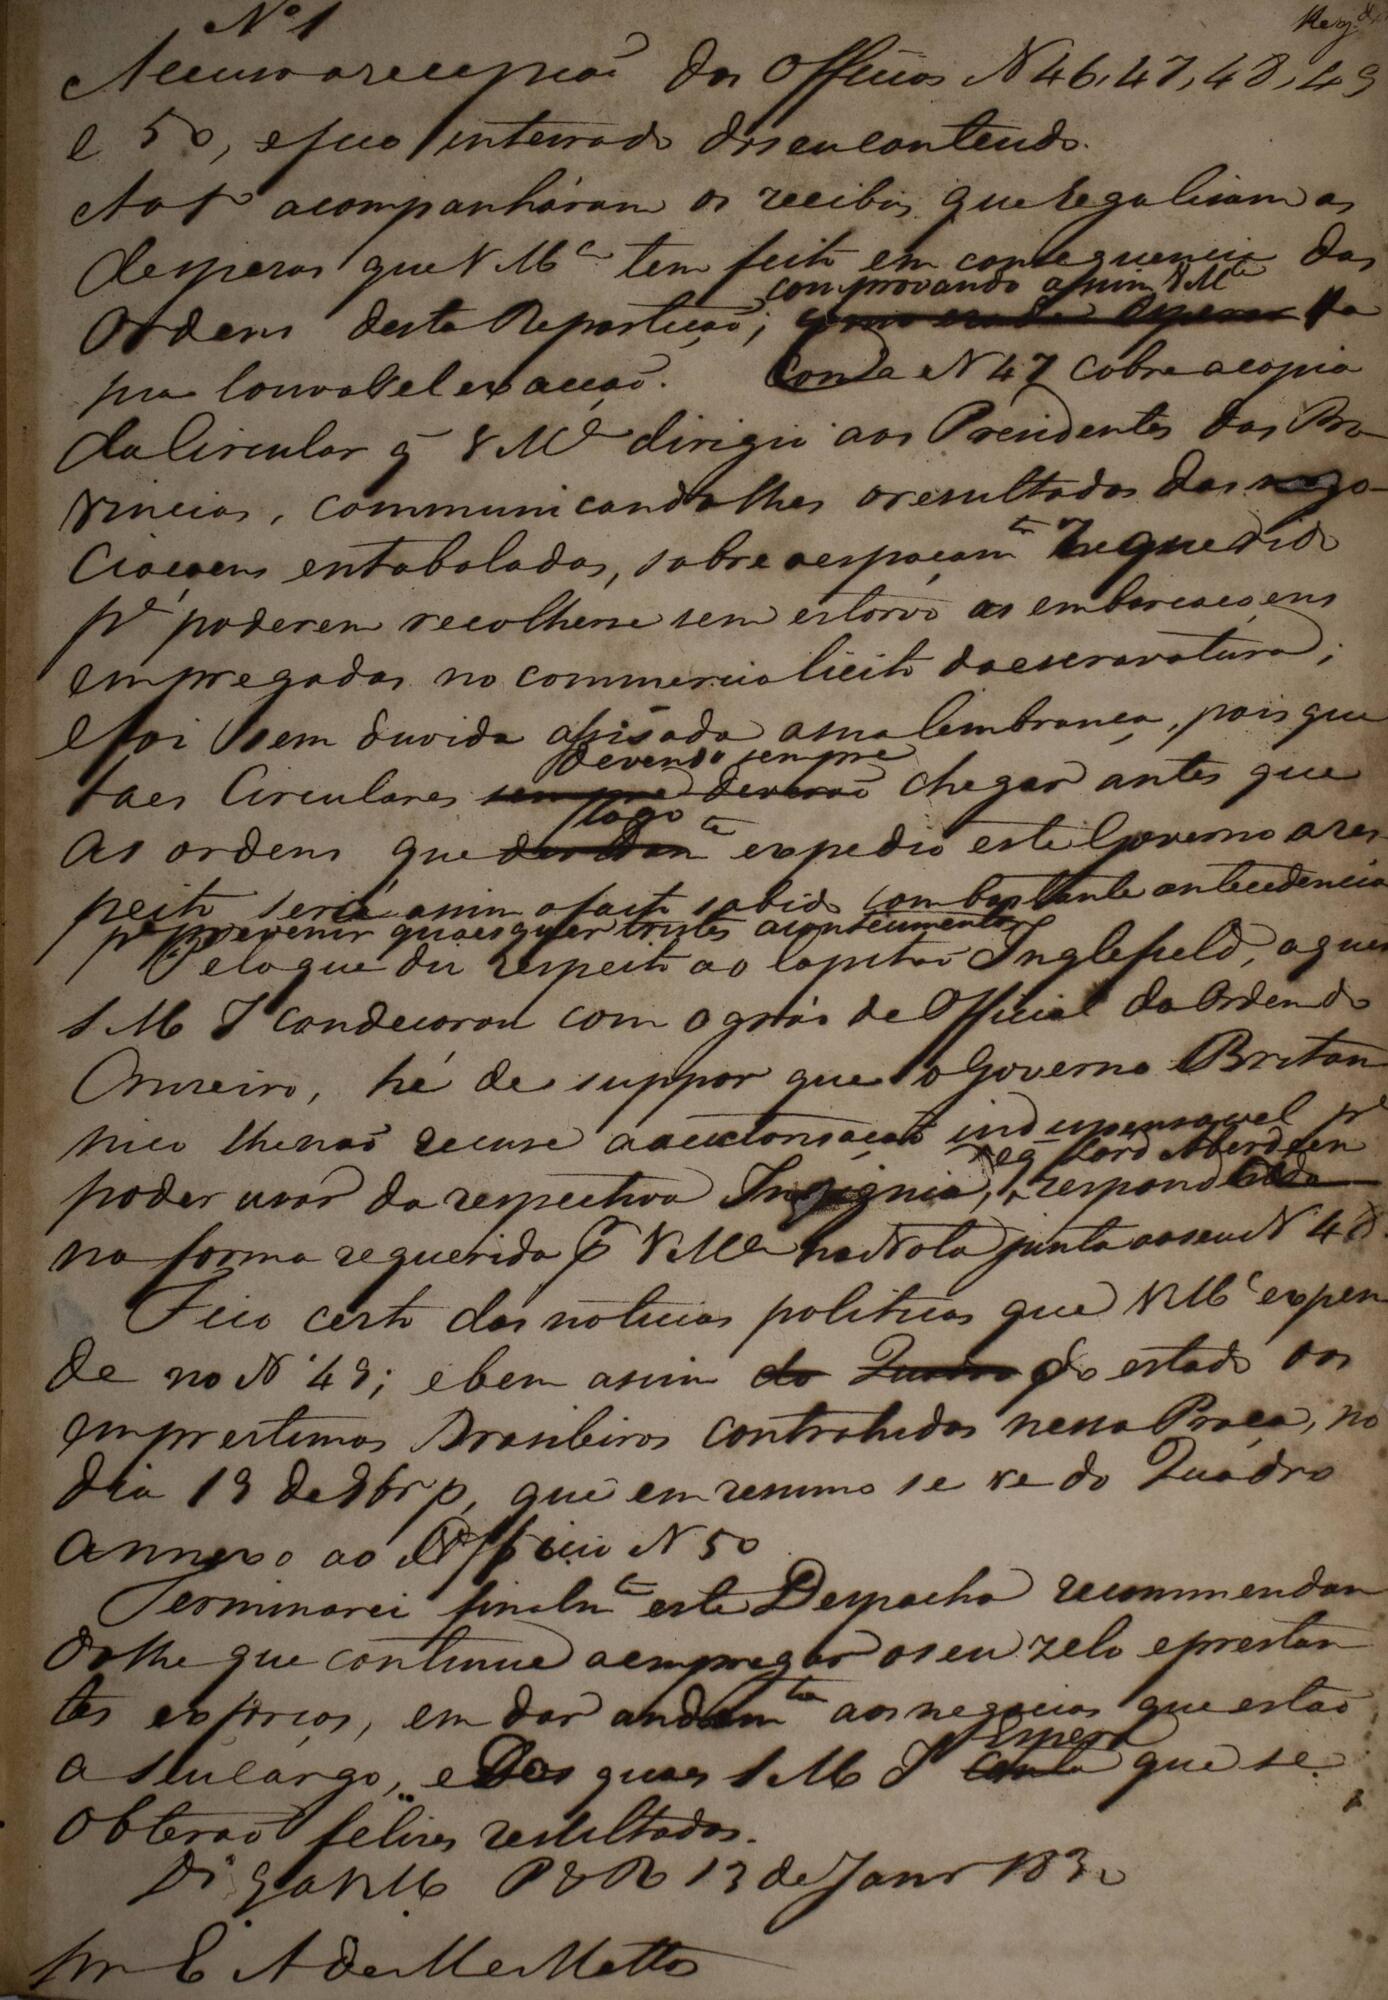 Nº 1
Reg.do
Accuso a recepção dos Officios N 46, 47, 48, 49
e 50, e fico inteirado do seu contendo.
Ao 1º acompanháram os recibos que legalisam as
despezas que V Mce tem feito em consequencia das
comprovando assim V Mce
Ordens desta Repartição; da
sua louvavel exacção. Com a N 47 cobre a copia
da Circular q̃ V Mce dirigio aos Presidentes das Pro-
vincias, communicandolhes o resultado das nego-
ciaçoens entaboladas, sobre o espaçamto requerido
pa poderem recolherse sem estorvo as embarcaçoens
empregadas no commercio licito da escravatura;
e foi sem duvida assisada a sua lembrança, pois que
devendo sempre
taes Circulares sempre deverão chegar antes que
logo
as ordens que expedio este Governo a res-
peito, será assim o facto sabido com bastante antecedencia
pa prevenir quaesquer tristes acontecimentos
Pelo que diz respeito ao Capitão Inglefield, a quem
S M I condecorou com o gráo de Official da Ordem do
Cruzeiro, hé de suppor que o Governo Britan-
nico lhe não recuse a auctorisação indispensavel pa
poder usar da respectiva Insignia, respond
se q̃ Lord Aberdeen
na forma requerida p V Mce na Nota junta ao seu N 48.
Fico certo das noticias politicas que V Mce expen-
de no N 49; e bem assim do Quadro do estado dos
emprestimos Brasileiros contrahidos nessa Praça, no
dia 19 de 9br p, que em resumo se ve do Quadro
annexo ao Officio N 50
Terminarei finalmte este Despacho recommendan-
dolhe que continue a empregar o seu zelo e prestan-
tes esforços, em dar andamto aos negocios que estão
Espera
a seu cargo, e dos quaes S M I conta que se
obterão felizes resultados.
Ds Ga V M P do R 13 de Janr 1830
Snr E A de Me Mattos